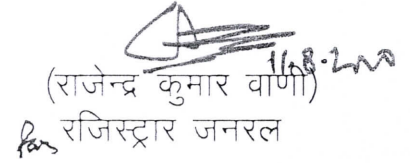 11.8.2000
(राजेन्द्र कुमार वाणी)
For रजिस्ट्रार जनरल